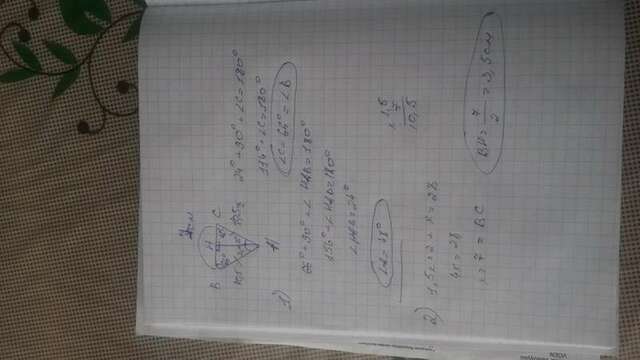 7 см
H
B C
10,5 10,5
A
24° + 90° + ∠C = 180°
114° + ∠C = 180°
1) ∠C = 66° = ∠B
66° + 90° + ∠HAB = 180°
156° + ∠HAB = 180°
∠HAB = 24°
∠A = 48°
1,5
× 7
10,5
2) 1,5x · 2 + x = 28
4x = 28
x = 7 = BC
BH = 7/2 = 3,5 см